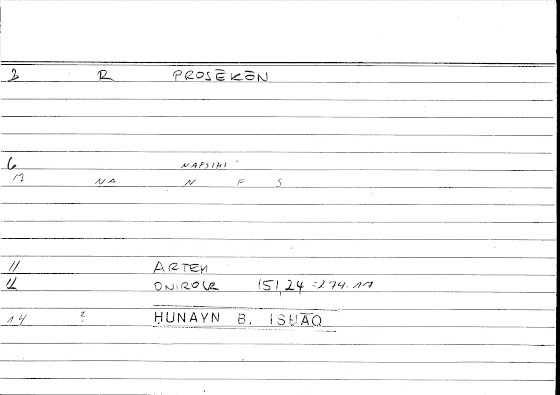 2 R PROSĒKEN
6 NAFSIHI
7 NA N F S
11 ARTEM
12 ONIROCR 151,24 = 274.17
14 ? HUNAYN B. ISHĀQ